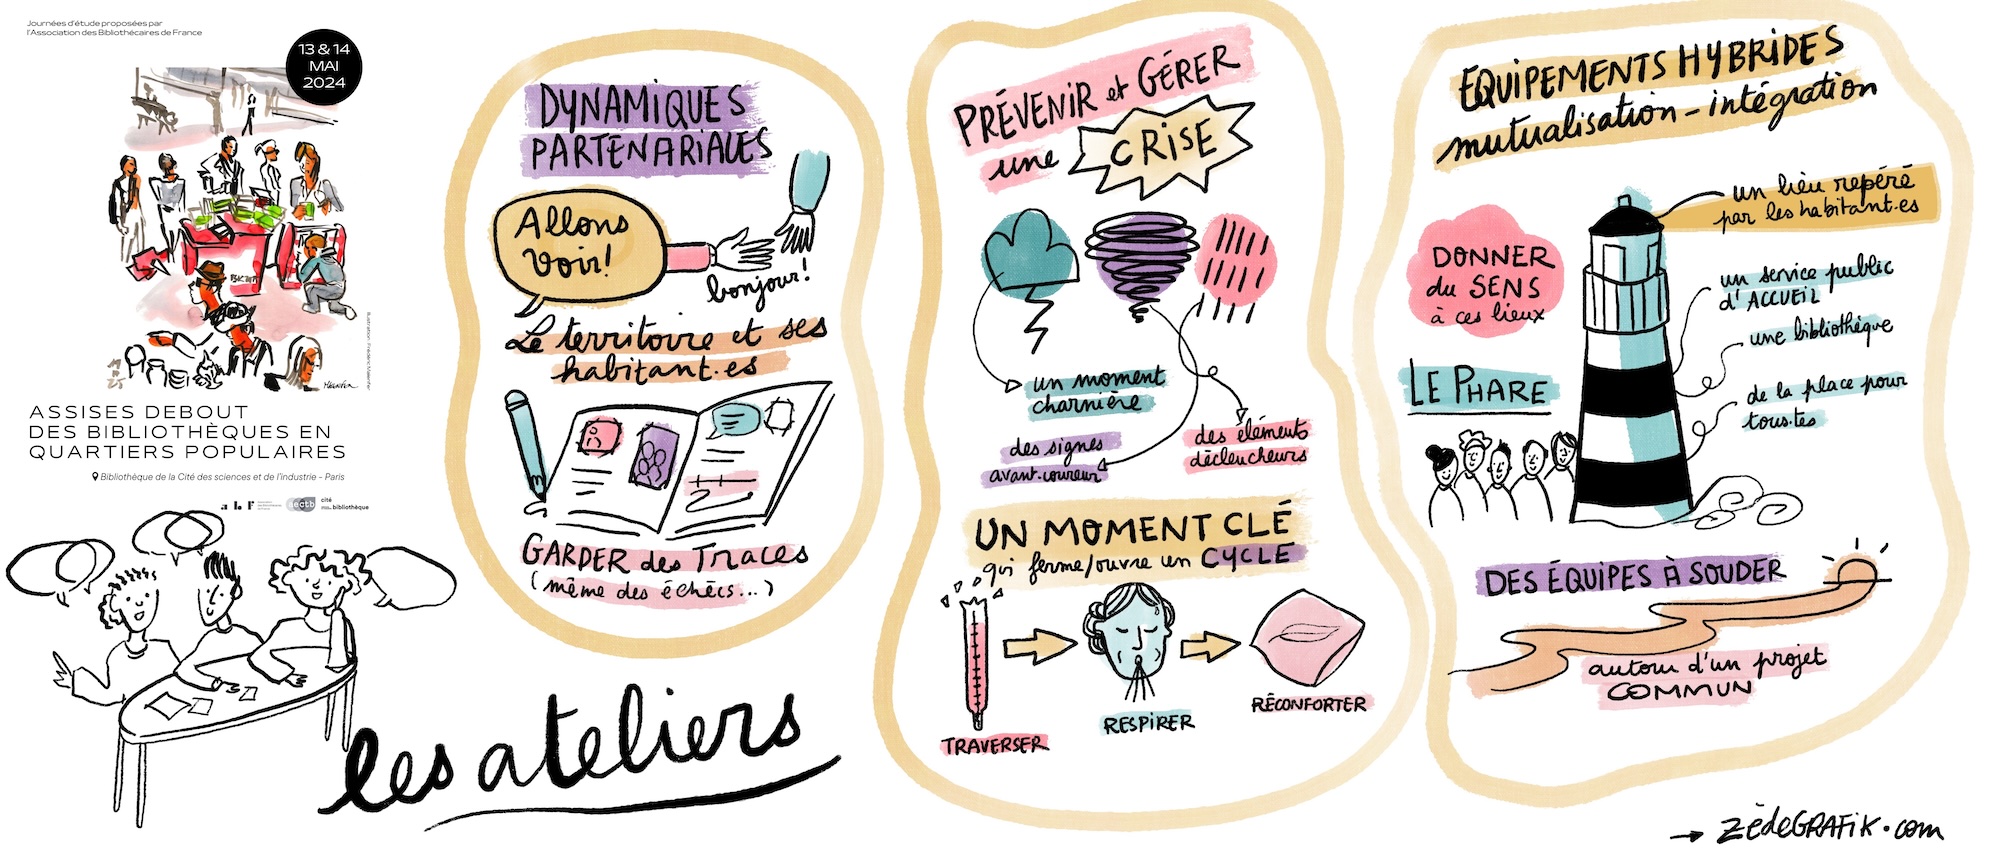 Journées d'étude proposées par
l'Association des Bibliothécaires de France
13 & 14
MAI
2024
Illustration: Frédéric Malenfer
ASSISES DEBOUT
DES BIBLIOTHÈQUES EN
QUARTIERS POPULAIRES
Bibliothèque de la Cité des sciences et de l'industrie - Paris
cité
bibliothèque
les ateliers
DYNAMIQUES
PARTENARIALES
Allons
voir!
bonjour!
Le territoire et ses
habitant·es
GARDER des TRACES
(même des échecs...)
PRÉVENIR et GÉRER
une CRISE
un moment
charnière
des signes
avant-coureur
des éléments
déclencheurs
UN MOMENT CLÉ
qui ferme/ouvre un CYCLE
TRAVERSER
RESPIRER
RÉCONFORTER
EQUIPEMENTS HYBRIDES
mutualisation - intégration
un lieu repéré
par les habitant·es
DONNER
du SENS
à ces lieux
un service public
d'ACCUEIL
une bibliothèque
LE PHARE
de la place pour
tous·tes
DES ÉQUIPES À SOUDER
autour d'un projet
COMMUN
→ ZèdeGRAFIK.com